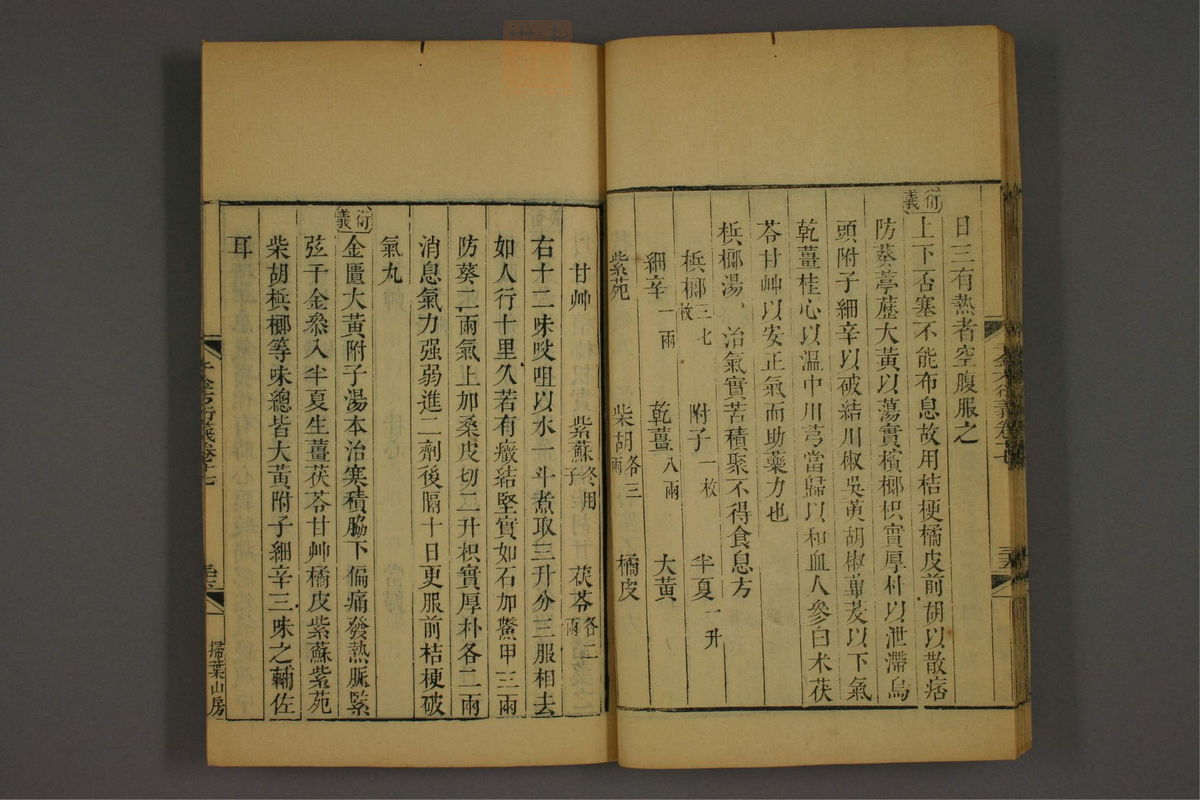 日三有熱者空腹服之
衍義
上下否塞不能布息故用桔梗橘皮前胡以散痞
防葵葶藶大黃以蕩實檳榔枳實厚朴以泄滯烏
頭附子細辛以破結川椒吳萸胡椒蓽茇以下氣
乾薑桂心以溫中川芎當歸以和血人參白朮茯
苓甘艸以安正氣而助藥力也
檳榔湯、治氣實苦積聚不得食息方
檳榔三七枚 附子一枚 半夏一升
細辛一兩 乾薑八兩 大黃
紫菀 柴胡各三兩 橘皮
甘艸 紫蘇冬用子 茯苓各二兩
右十二味㕮咀以水一斗煮取三升分三服相去
如人行十里久若有癥結堅實如石加鱉甲三兩
防葵二兩氣上加桑皮切二升枳實厚朴各二兩
消息氣力强弱進二劑後隔十日更服前桔梗破
氣丸
衍義
金匱大黃附子湯本治寒積脇下偏痛發熱脈緊
弦千金叅入半夏生薑茯苓甘艸橘皮紫蘇紫菀
柴胡檳榔等味總皆大黃附子細辛三味之輔佐
耳
千金方衍義卷十七
掃葉山房